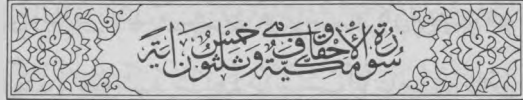 سُورَةُ الْأَحْقَافِ مَكِّيَّةٌ وَهِيَ خَمْسٌ وَثَلٰثُونَ اٰيَةً